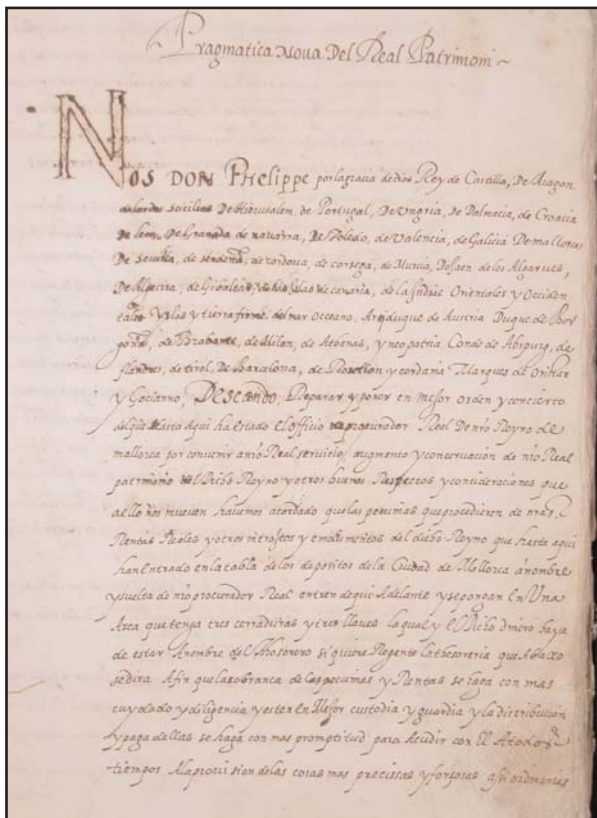 Pragmatica Nova Del Real Patrimoni
NOS DON PHelippe por la gracia de dios Rey de Castilla, De Aragon
de las dos Sicilias De Hierusalem, de Portugal, De Ungria, De Dalmacia, de Croacia
De leon, De Granada de navarra, De Toledo, de Valencia, de Galicia De mallorca
De Sevilla, de cordova, de corsega, de Murcia, De Jaen de los Algarves,
De Algecira, de Gibraltar, de las Islas de canaria, de las Indias Orientales y Occiden
tales Yslas y tierra firme del mar Oceano, Archiduque de Austria Duque de Bor
de Brabante, de Milan, de Athenas, y neopatria Conde de Abspurg, de
flandes, de tirol, De Barcelona, de Rosellon y cerdania Marques de Oristan
y Gociano, Deseando, Reparar y poner en mejor orden y concierto
del que hasta aqui ha estado el officio de procurador Real De nro Reyno de
mallorca por convenir a nro Real servicio, augmento y conservacion de nro Real
patrimonio del dicho Reyno y otros buenos Respectos y consideraciones que
a ello nos mueven havemos acordado que las pecunias que procedieren de nras
Rentas Reales y otros introytos y emolumentos del dicho Reyno que hasta aqui
han Entrado en la tabla de los depositos de la Ciudad de Mallorca a nombre
y suelta de nro procurador Real entren de qui Adelante y se pongan En Una
Arca que tenga tres cerraduras y tres llaves la qual y El Dicho dinero haya
de estar A nombre del Thesorero si quiere Regente la thesoreria que Abaxo
se dira. A fin que la cobranca de las pecunias y Rentas se haga con mas
cuydado y diligencia y esten En Mejor custodia y guardia y la distribucion
y paga dellas se haga con mas promptitud para Acudir con El A todos
tiempos A la provision de las cosas mas precissas y forsosas assi ordinarias